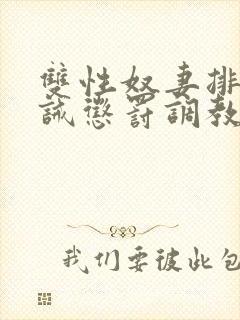 雙性奴妻排
誡懲罰調教
我们要彼此包